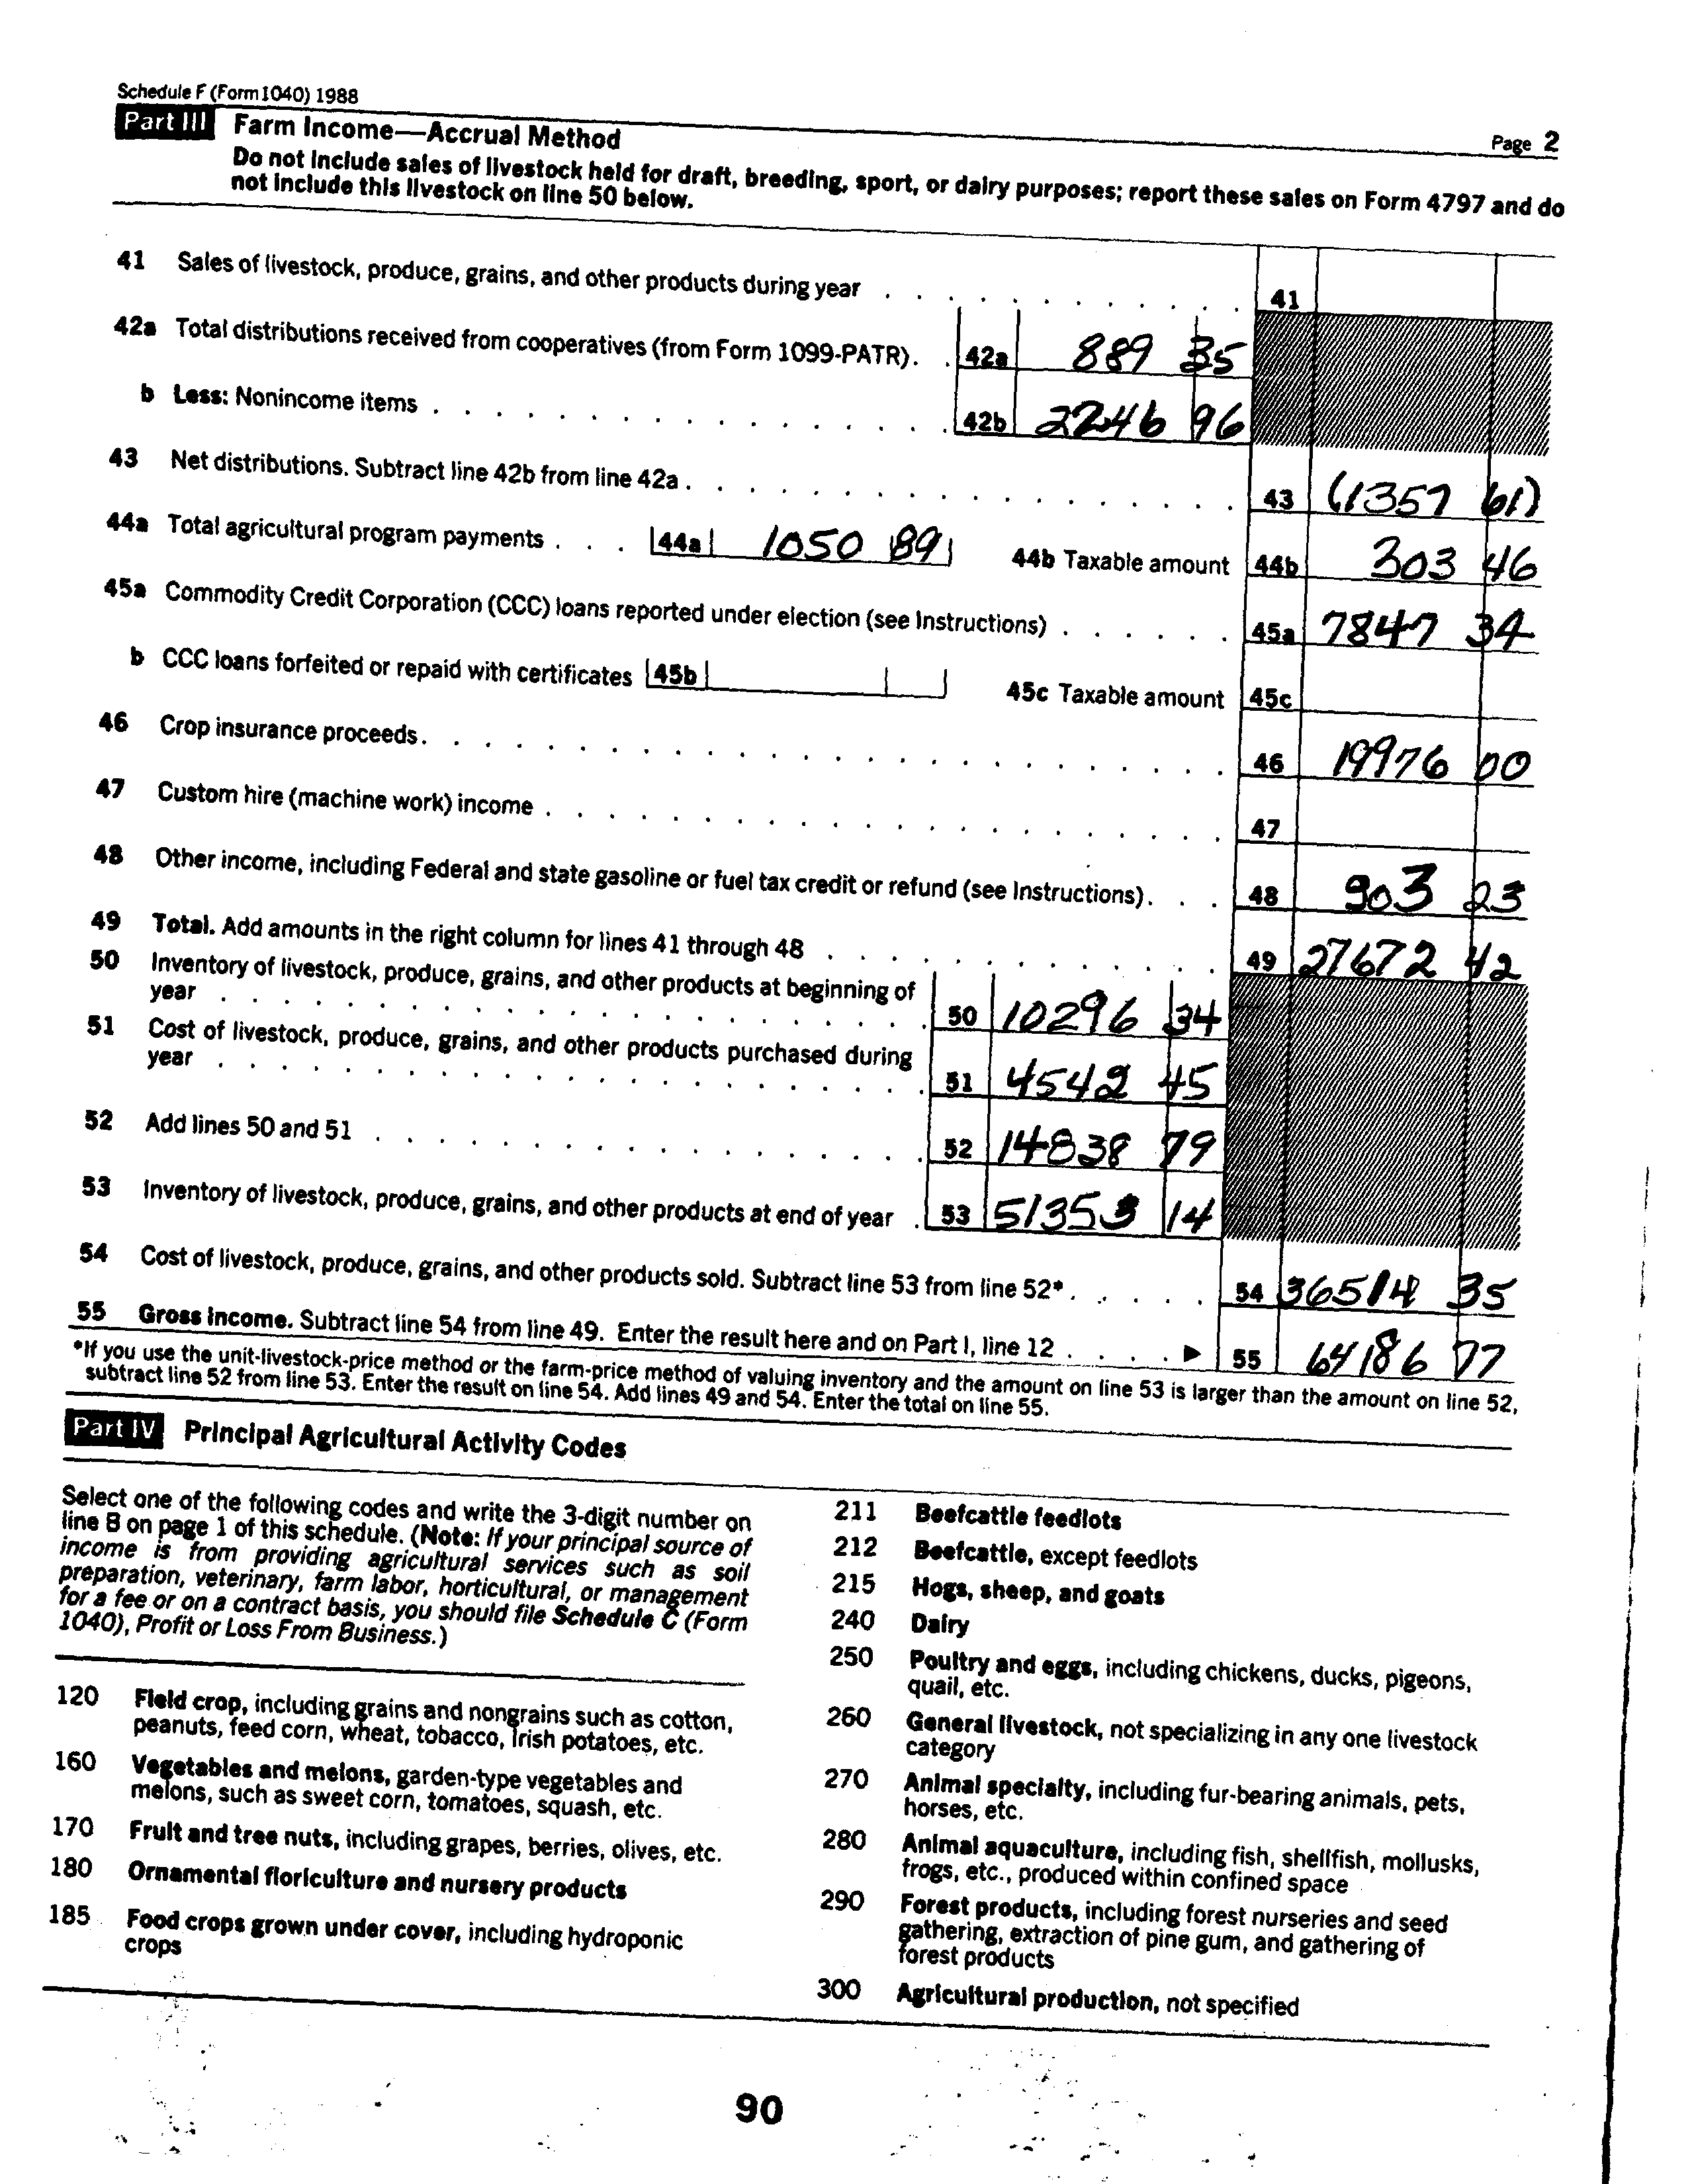 Schedule F (Form 1040) 1988
Page 2
Part III Farm Income—Accrual Method
Do not include sales of livestock held for draft, breeding, sport, or dairy purposes; report these sales on Form 4797 and do
not include this livestock on line 50 below.
41 Sales of livestock, produce, grains, and other products during year . . . . . . . . . . . . 41
42a Total distributions received from cooperatives (from Form 1099-PATR). . 42a 889 35
b Less: Nonincome items . . . . . . . . . . . . . . . . . 42b 2246 96
43 Net distributions. Subtract line 42b from line 42a . . . . . . . . . . . . . . . . . . 43 (1357 61)
44a Total agricultural program payments . . . 44a 1050 89 44b Taxable amount 44b 303 46
45a Commodity Credit Corporation (CCC) loans reported under election (see Instructions) . . . . . . 45a 7847 34
b CCC loans forfeited or repaid with certificates 45b 45c Taxable amount 45c
46 Crop insurance proceeds. . . . . . . . . . . . . . . . . . . . . . . . . . 46 19976 00
47 Custom hire (machine work) income . . . . . . . . . . . . . . . . . . . . . . 47
48 Other income, including Federal and state gasoline or fuel tax credit or refund (see Instructions). . . 48 903 23
49 Total. Add amounts in the right column for lines 41 through 48 . . . . . . . . . . . . . 49 27672 42
50 Inventory of livestock, produce, grains, and other products at beginning of
year . . . . . . . . . . . . . . . . . . . . . . . 50 10296 34
51 Cost of livestock, produce, grains, and other products purchased during
year . . . . . . . . . . . . . . . . . . . . . . . 51 4542 45
52 Add lines 50 and 51 . . . . . . . . . . . . . . . . . . 52 14838 79
53 Inventory of livestock, produce, grains, and other products at end of year . 53 51353 14
54 Cost of livestock, produce, grains, and other products sold. Subtract line 53 from line 52* . . . . . 54 36514 35
55 Gross income. Subtract line 54 from line 49. Enter the result here and on Part I, line 12 . . . . ▶ 55 64186 77
*If you use the unit-livestock-price method or the farm-price method of valuing inventory and the amount on line 53 is larger than the amount on line 52,
subtract line 52 from line 53. Enter the result on line 54. Add lines 49 and 54. Enter the total on line 55.
Part IV Principal Agricultural Activity Codes
Select one of the following codes and write the 3-digit number on
line B on page 1 of this schedule. (Note: If your principal source of
income is from providing agricultural services such as soil
preparation, veterinary, farm labor, horticultural, or management
for a fee or on a contract basis, you should file Schedule C (Form
1040), Profit or Loss From Business.)
120 Field crop, including grains and nongrains such as cotton,
peanuts, feed corn, wheat, tobacco, Irish potatoes, etc.
160 Vegetables and melons, garden-type vegetables and
melons, such as sweet corn, tomatoes, squash, etc.
170 Fruit and tree nuts, including grapes, berries, olives, etc.
180 Ornamental floriculture and nursery products
185 Food crops grown under cover, including hydroponic
crops
211 Beefcattle feedlots
212 Beefcattle, except feedlots
215 Hogs, sheep, and goats
240 Dairy
250 Poultry and eggs, including chickens, ducks, pigeons,
quail, etc.
260 General livestock, not specializing in any one livestock
category
270 Animal specialty, including fur-bearing animals, pets,
horses, etc.
280 Animal aquaculture, including fish, shellfish, mollusks,
frogs, etc., produced within confined space
290 Forest products, including forest nurseries and seed
gathering, extraction of pine gum, and gathering of
forest products
300 Agricultural production, not specified
90